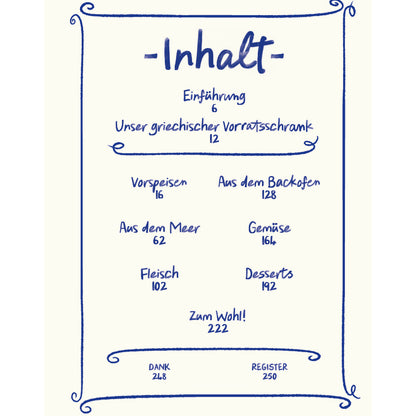 -Inhalt-
Einführung
6
Unser griechischer Vorratsschrank
12
Vorspeisen
16
Aus dem Backofen
128
Aus dem Meer
62
Gemüse
164
Fleisch
102
Desserts
192
Zum Wohl!
222
DANK
248
REGISTER
250